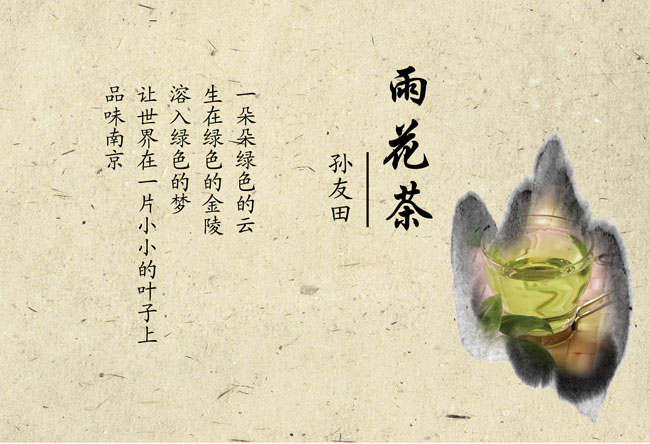 雨花茶
孙友田
一朵朵绿色的云
生在绿色的金陵
溶入绿色的梦
让世界在一片小小的叶子上
品味南京